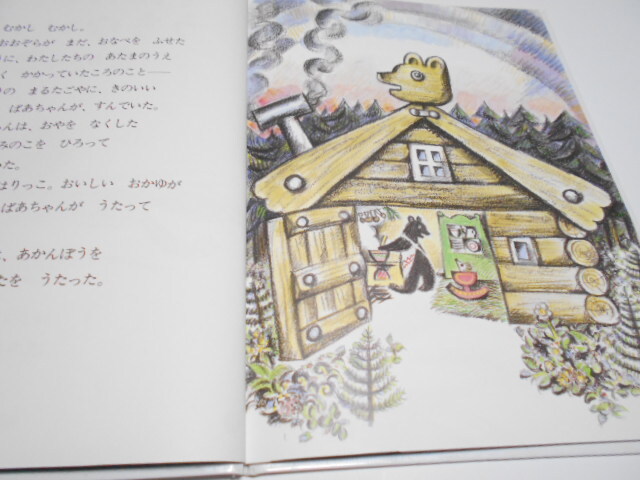 むかし　むかし。
おおぞらが　まだ、おなべを　ふせた
に、わたしたちの　あたまのうえ
く　かかっていたころのこと――
の　まるたごやに、きのいい
ばあちゃんが、すんでいた。
んは、おやを　なくした
みのこを　ひろって
た。
はりっこ。おいしい　おかゆが
ばあちゃんが　うたって
、あかんぼうを
たを　うたった。